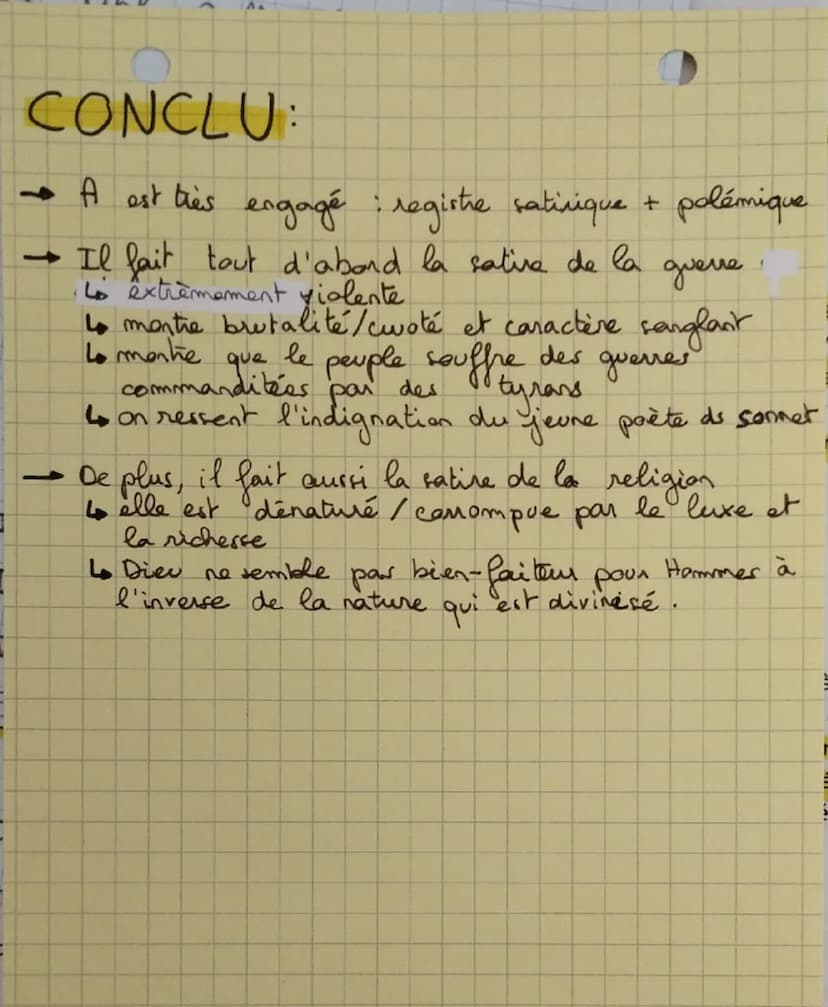 CONCLU:
→ A est très engagé : registre satirique + polémique
→ Il fait tout d'abord la satire de la guerre
↳ extrèmement violente
↳ montre brutalité/cruoté et caractère sanglant
↳ montre que le peuple souffre des guerres
commanditées par des tyrans
↳ on ressent l'indignation du jeune poète ds sonnet
→ De plus, il fait aussi la satire de la religion
↳ elle est dénaturé / corrompue par le luxe et
la richesse
↳ Dieu ne semble pas bien-faiteur pour Hommes à
l'inverse de la nature qui est divinisé.